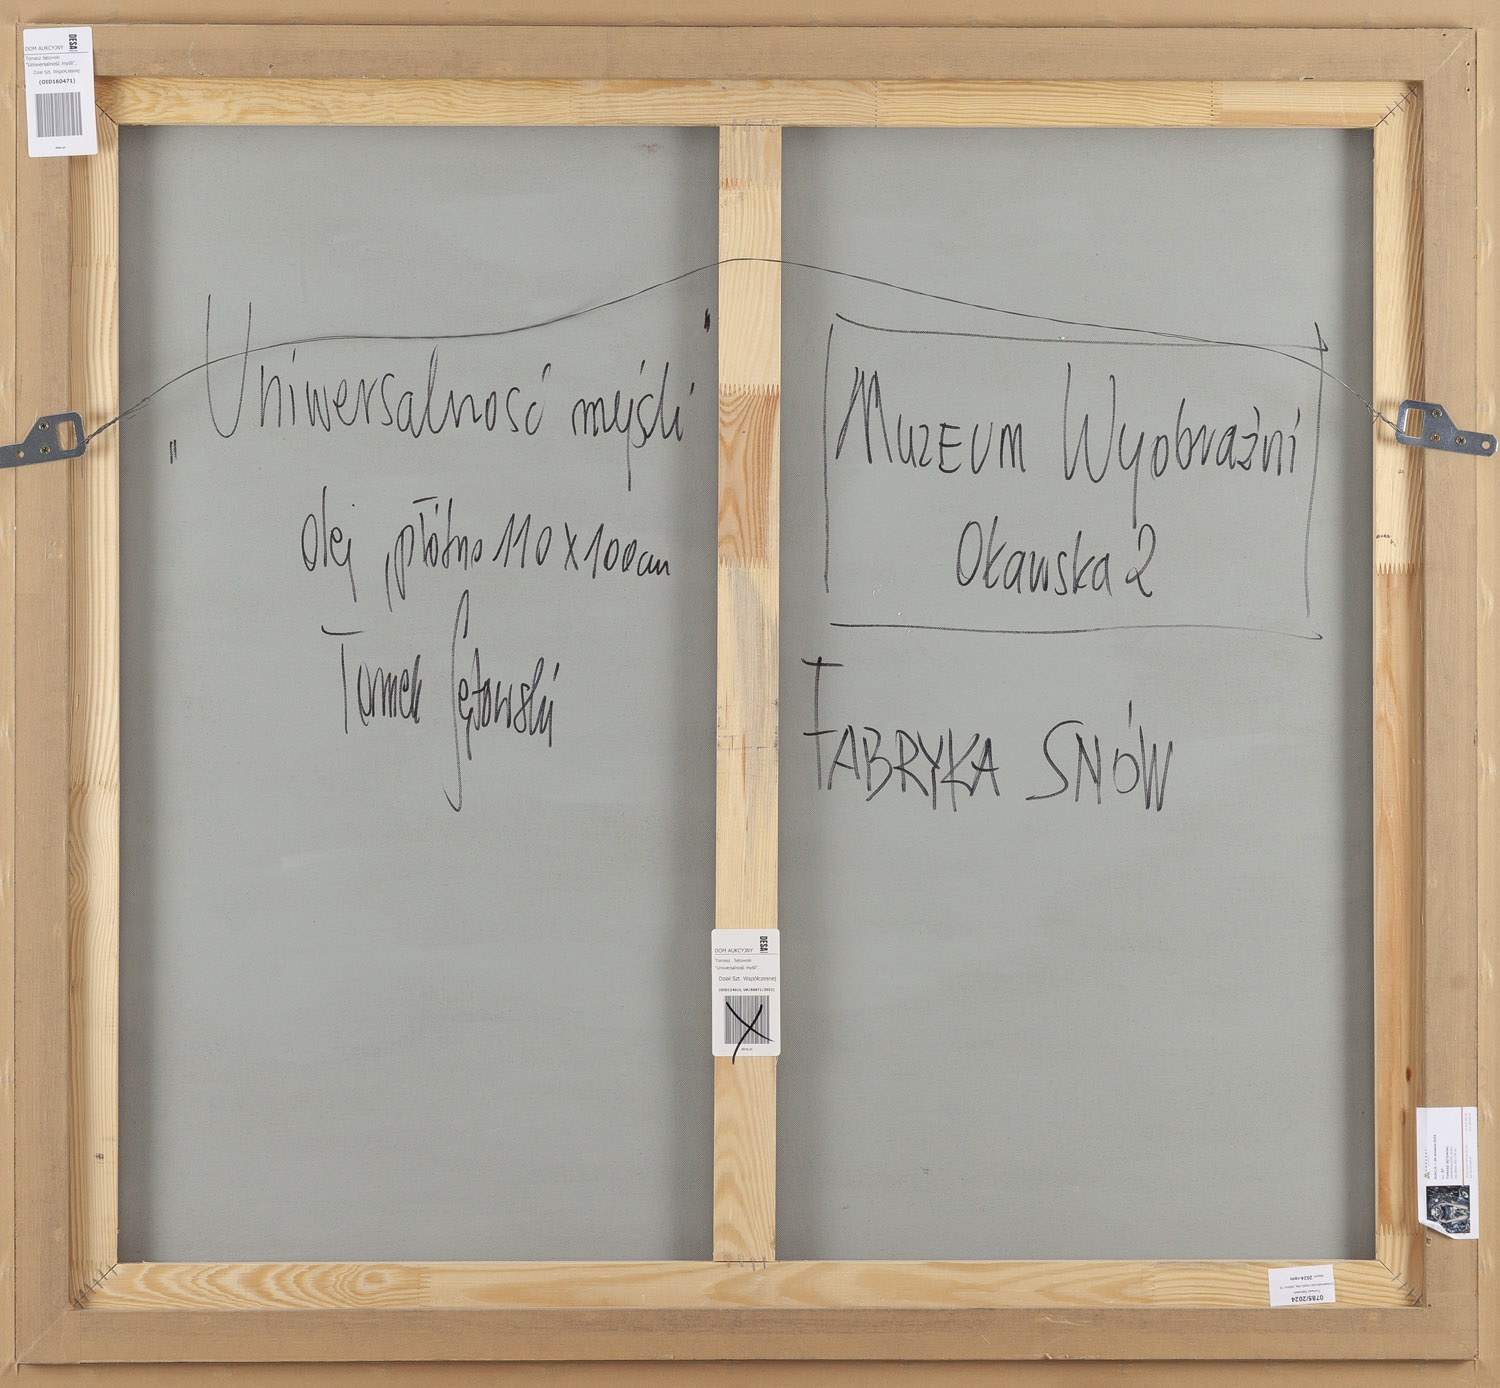 DOM AUKCYJNY DESA
Tomasz Sętowski
"Uniwersalność myśli",
Dział Szt. Współczesnej
(OID160471)
„Uniwersalność myśli"
olej, płótno 110 x 100cm
Tomek Sętowski
Muzeum Wyobraźni
Oławska 2
FABRYKA SNÓW
DOM AUKCYJNY DESA
Tomasz Sętowski
"Uniwersalność myśli",
Dział Szt. Współczesnej
0785/2024